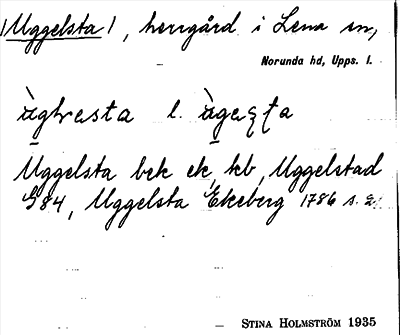 /Uggelsta/, herrgård i Lena sn,
Norunda hd, Upps. l.
l.
Uggelsta bek ek, kb, Uggelstad
G84, Uggelsta Ekeberg 1786 s. 2.
— STINA HOLMSTRÖM 1935